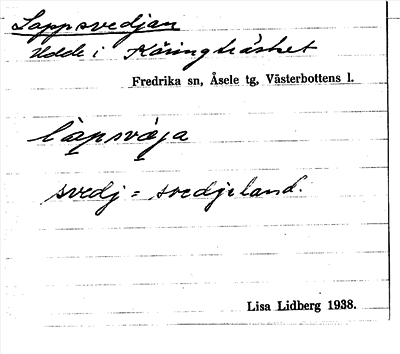 Lappsvedjan
Udde i Käringträsket
Fredrika sn, Åsele tg, Västerbottens l.
svedj = svedjeland.
Lisa Lidberg 1938.